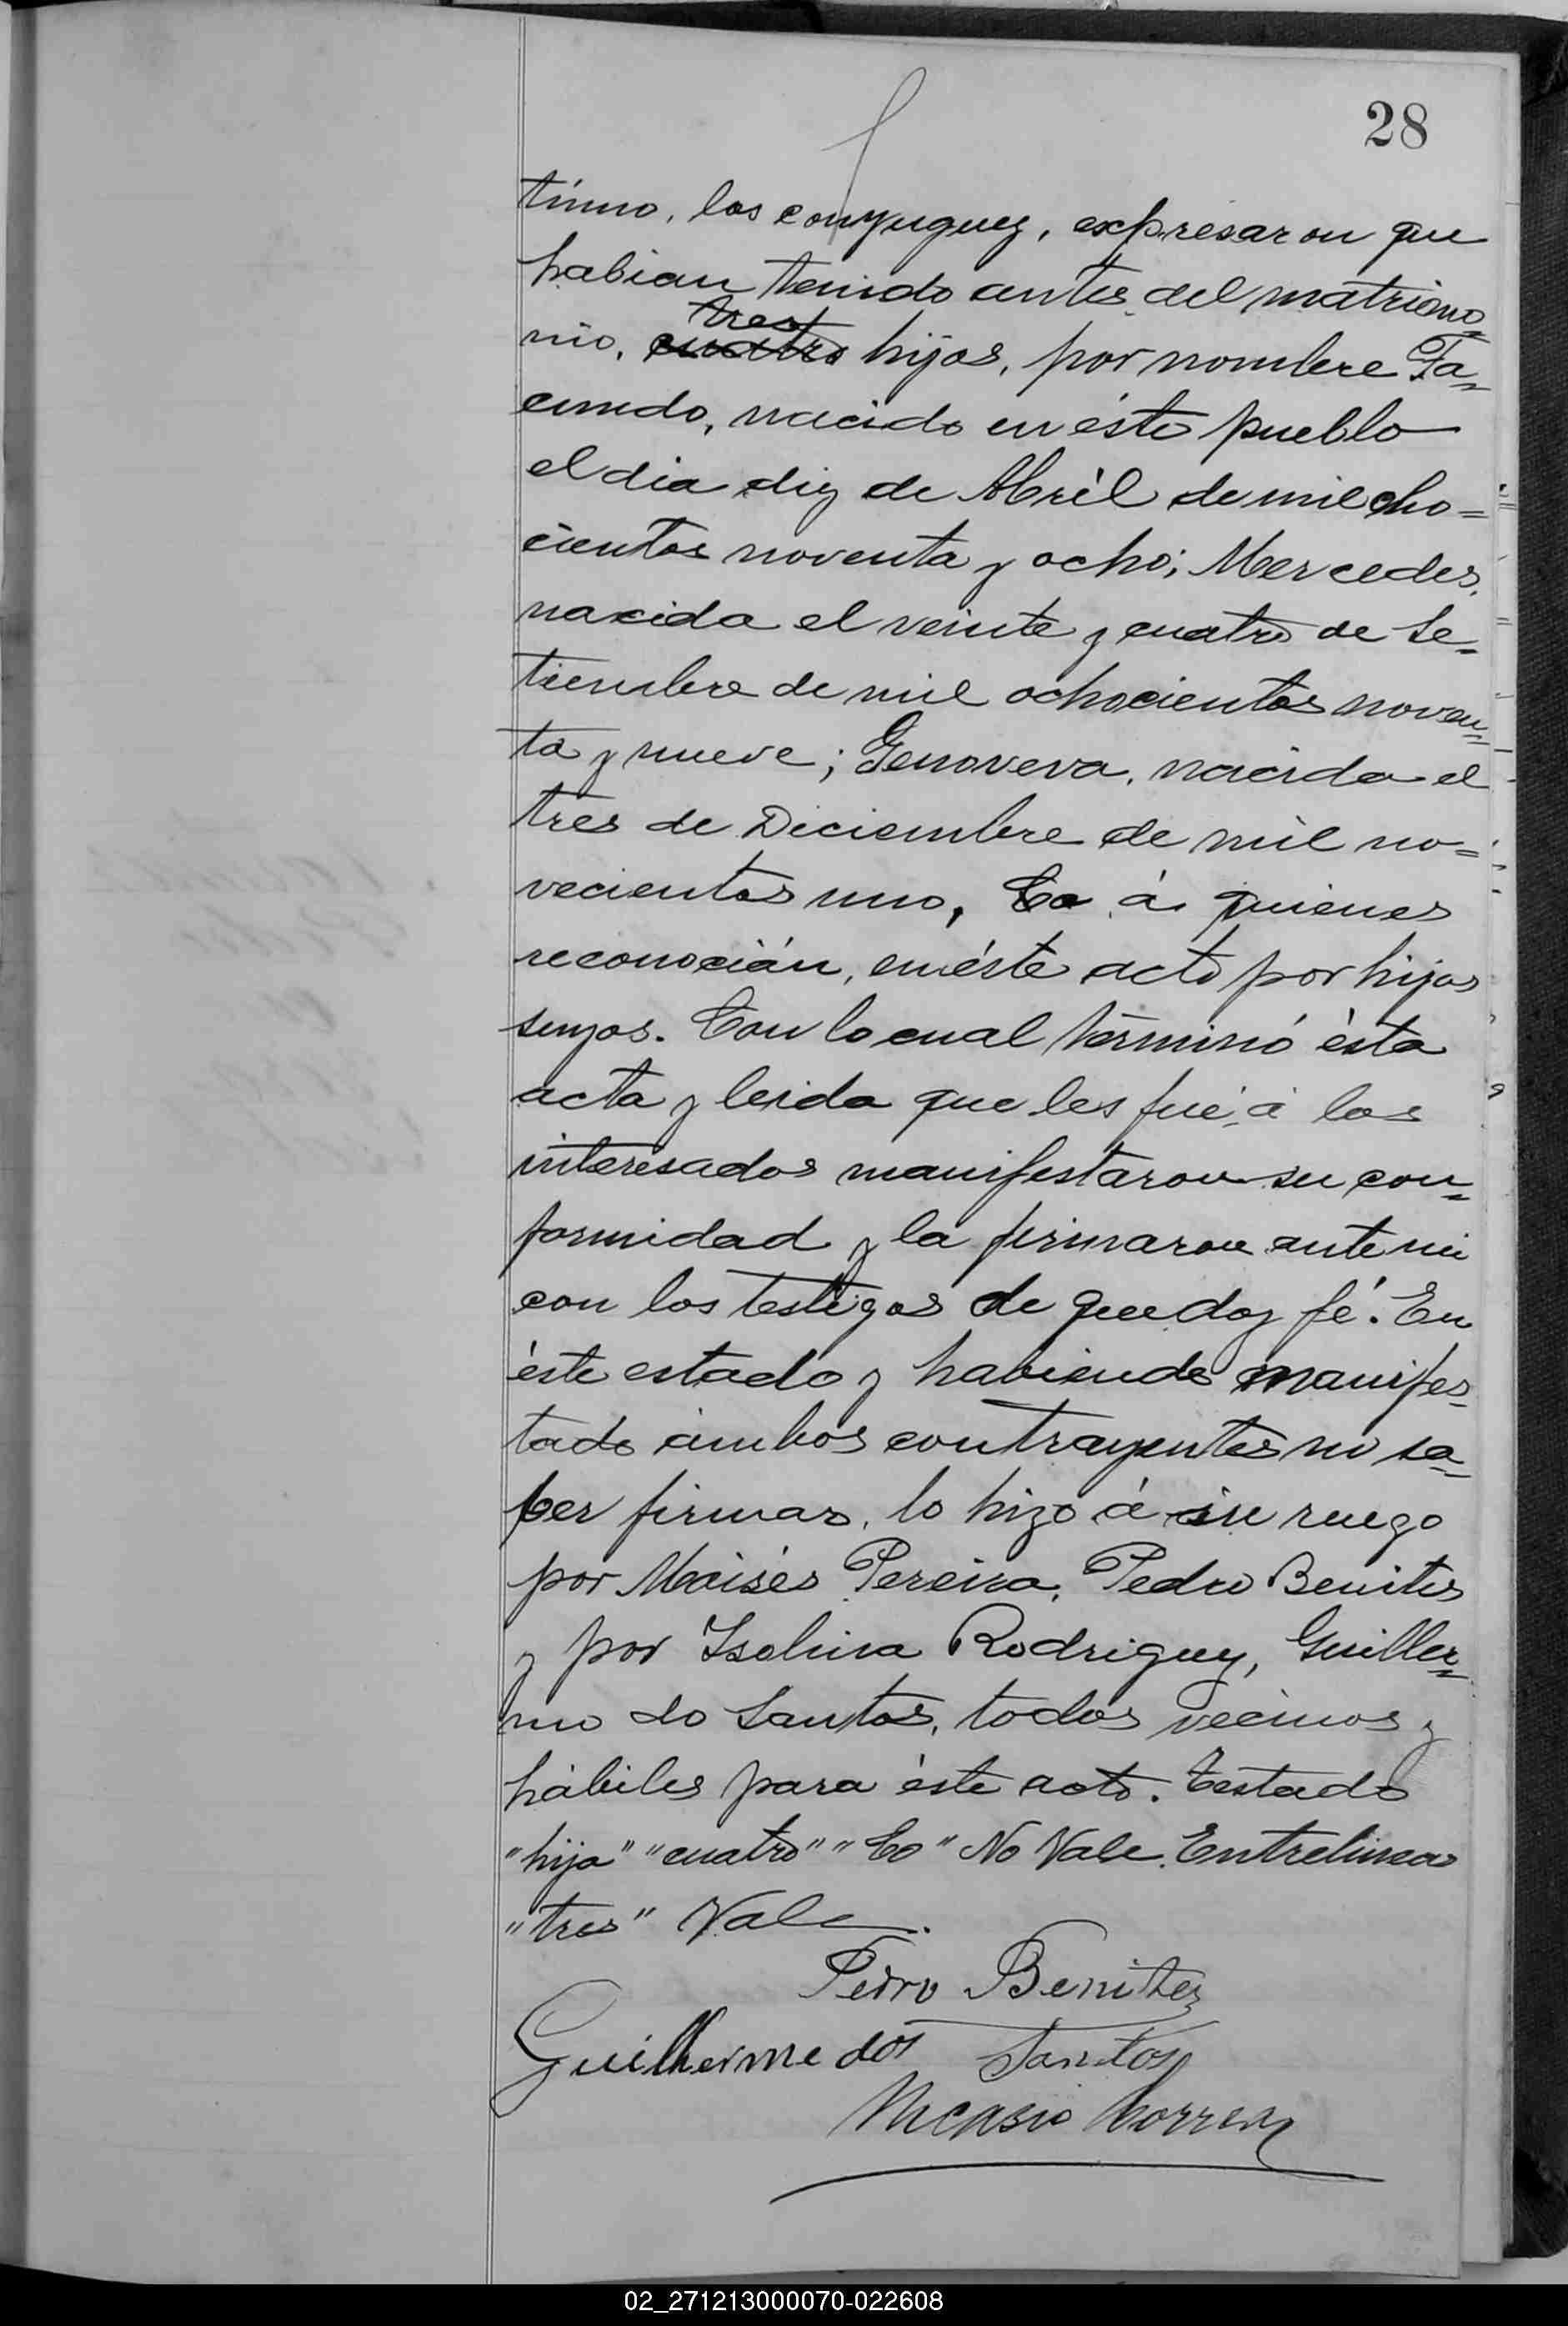 28
tínuo, los conyuguez, expresaron que
habian tenido antes del matrimo=
tres
nio, cuatro hijos, por nombre Fa=
cundo, nacido en éste pueblo
el dia diez de Abril de mil ocho=
cientos noventa y ocho; Mercedes,
nacida el veinte y cuatro de Se=
tiembre de mil ochocientos noven=
ta y nueve; Genoveva, nacida el
tres de Diciembre de mil no=
vecientos uno, Co á quienes
reconocián, en éste acto por hijos
suyos. Con lo cual términó ésta
acta y leida que les fué á los
interesados manifestaron su con=
formidad y la firmaron ante mi
con los testigos de que doy fé. En
éste estado y habiendo manifes=
tado ámbos contrayentes no sa=
ber firmar, lo hizo á su ruego
por Moisés Pereira, Pedro Benites
y por Isolina Rodriguez, Guiller=
mo do Santos, todos vecinos y
hábiles para éste acto. Testado
"hijo" "cuatro" "Co" No Vale. Entrelinea
"tres" Vale.
Pedro Benitez
Guilherme dos Santos
Nicasio Correa
02_271213000070-022608